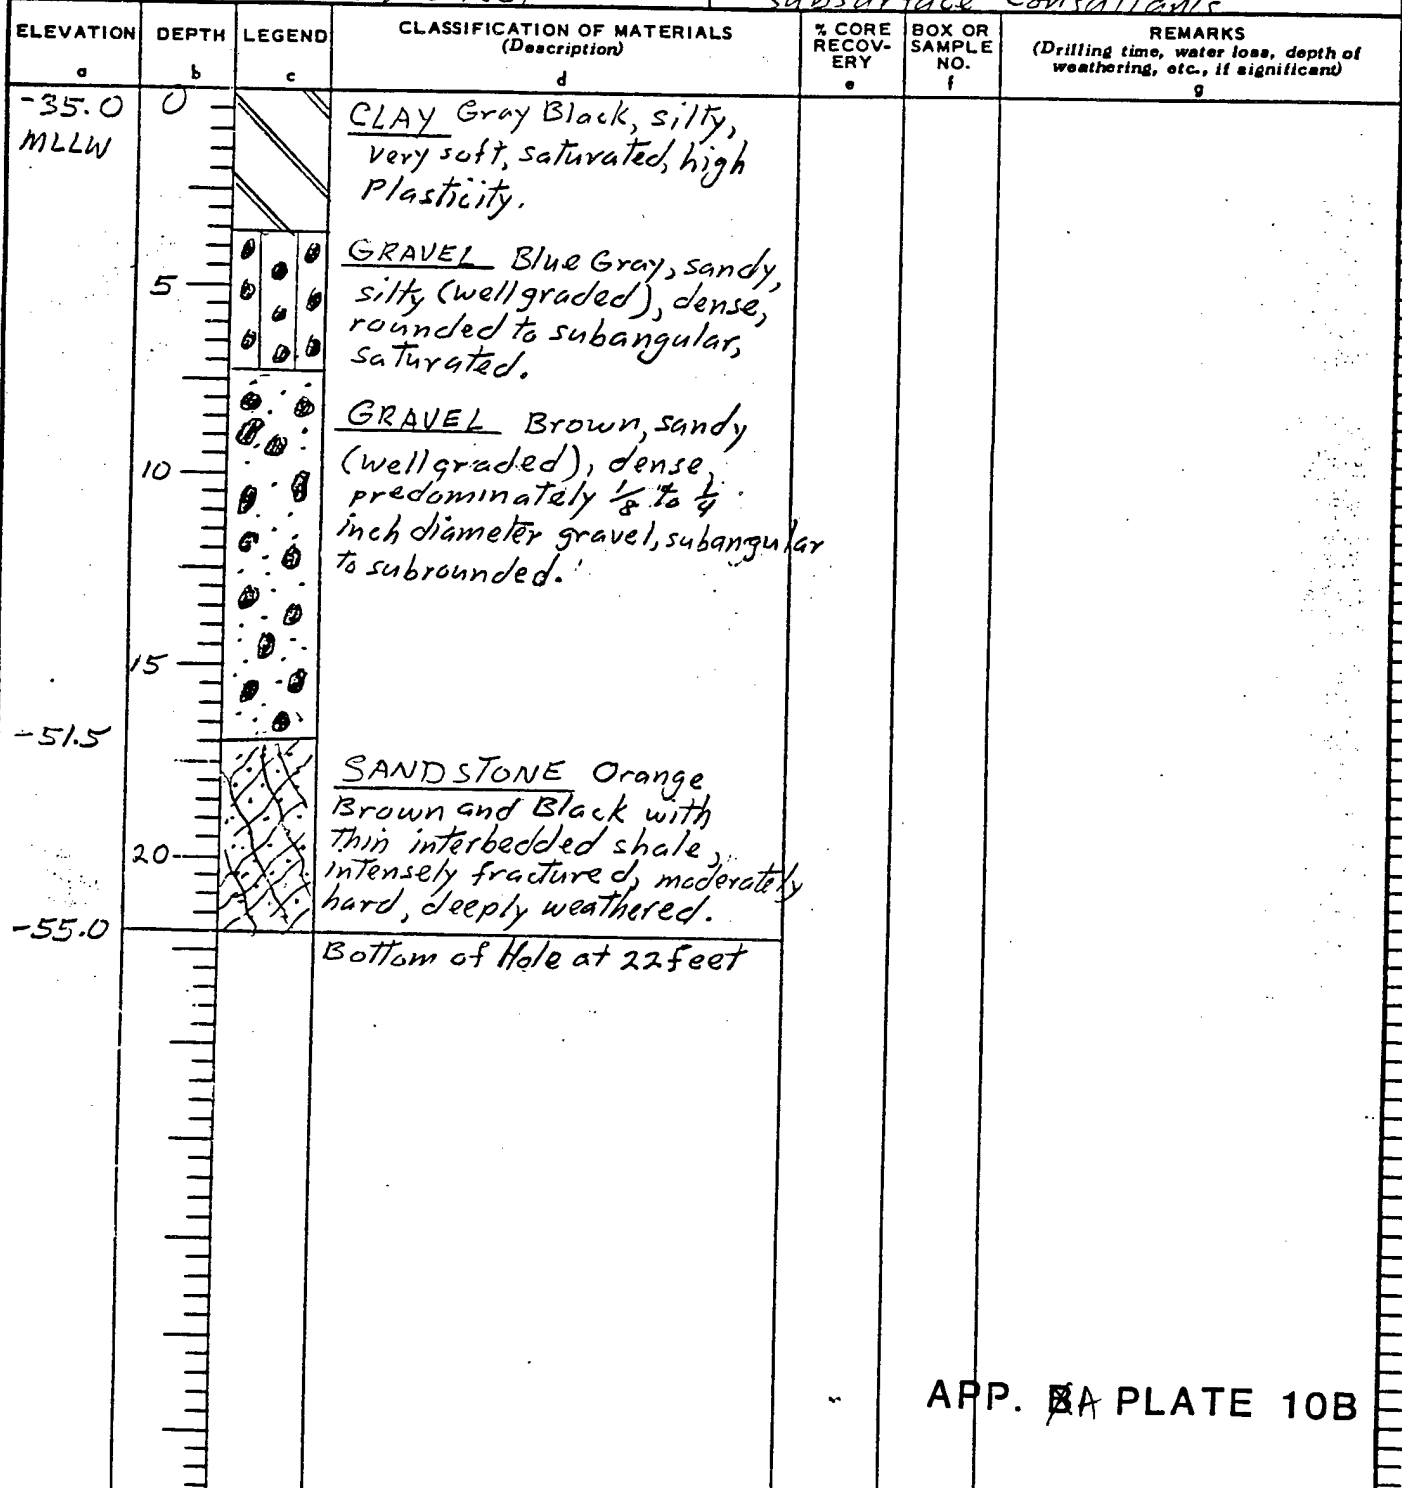 Subsurface Consultants
ELEVATION DEPTH LEGEND CLASSIFICATION OF MATERIALS % CORE BOX OR REMARKS
(Description) RECOV- SAMPLE (Drilling time, water loss, depth of
ERY NO. weathering, etc., if significant)
a b c d e f g
-35.0 0 CLAY Gray Black, silty,
MLLW very soft, saturated, high
Plasticity.
GRAVEL Blue Gray, sandy,
5 silty (well graded), dense,
rounded to subangular,
saturated.
GRAVEL Brown, sandy
10 (well graded), dense,
predominately 1/8 to 1/4
inch diameter gravel, subangular
to subrounded.
15
-51.5
SANDSTONE Orange
Brown and Black with
20 thin interbedded shale,
intensely fractured, moderately
hard, deeply weathered.
-55.0
Bottom of Hole at 22 feet
APP. A PLATE 10B